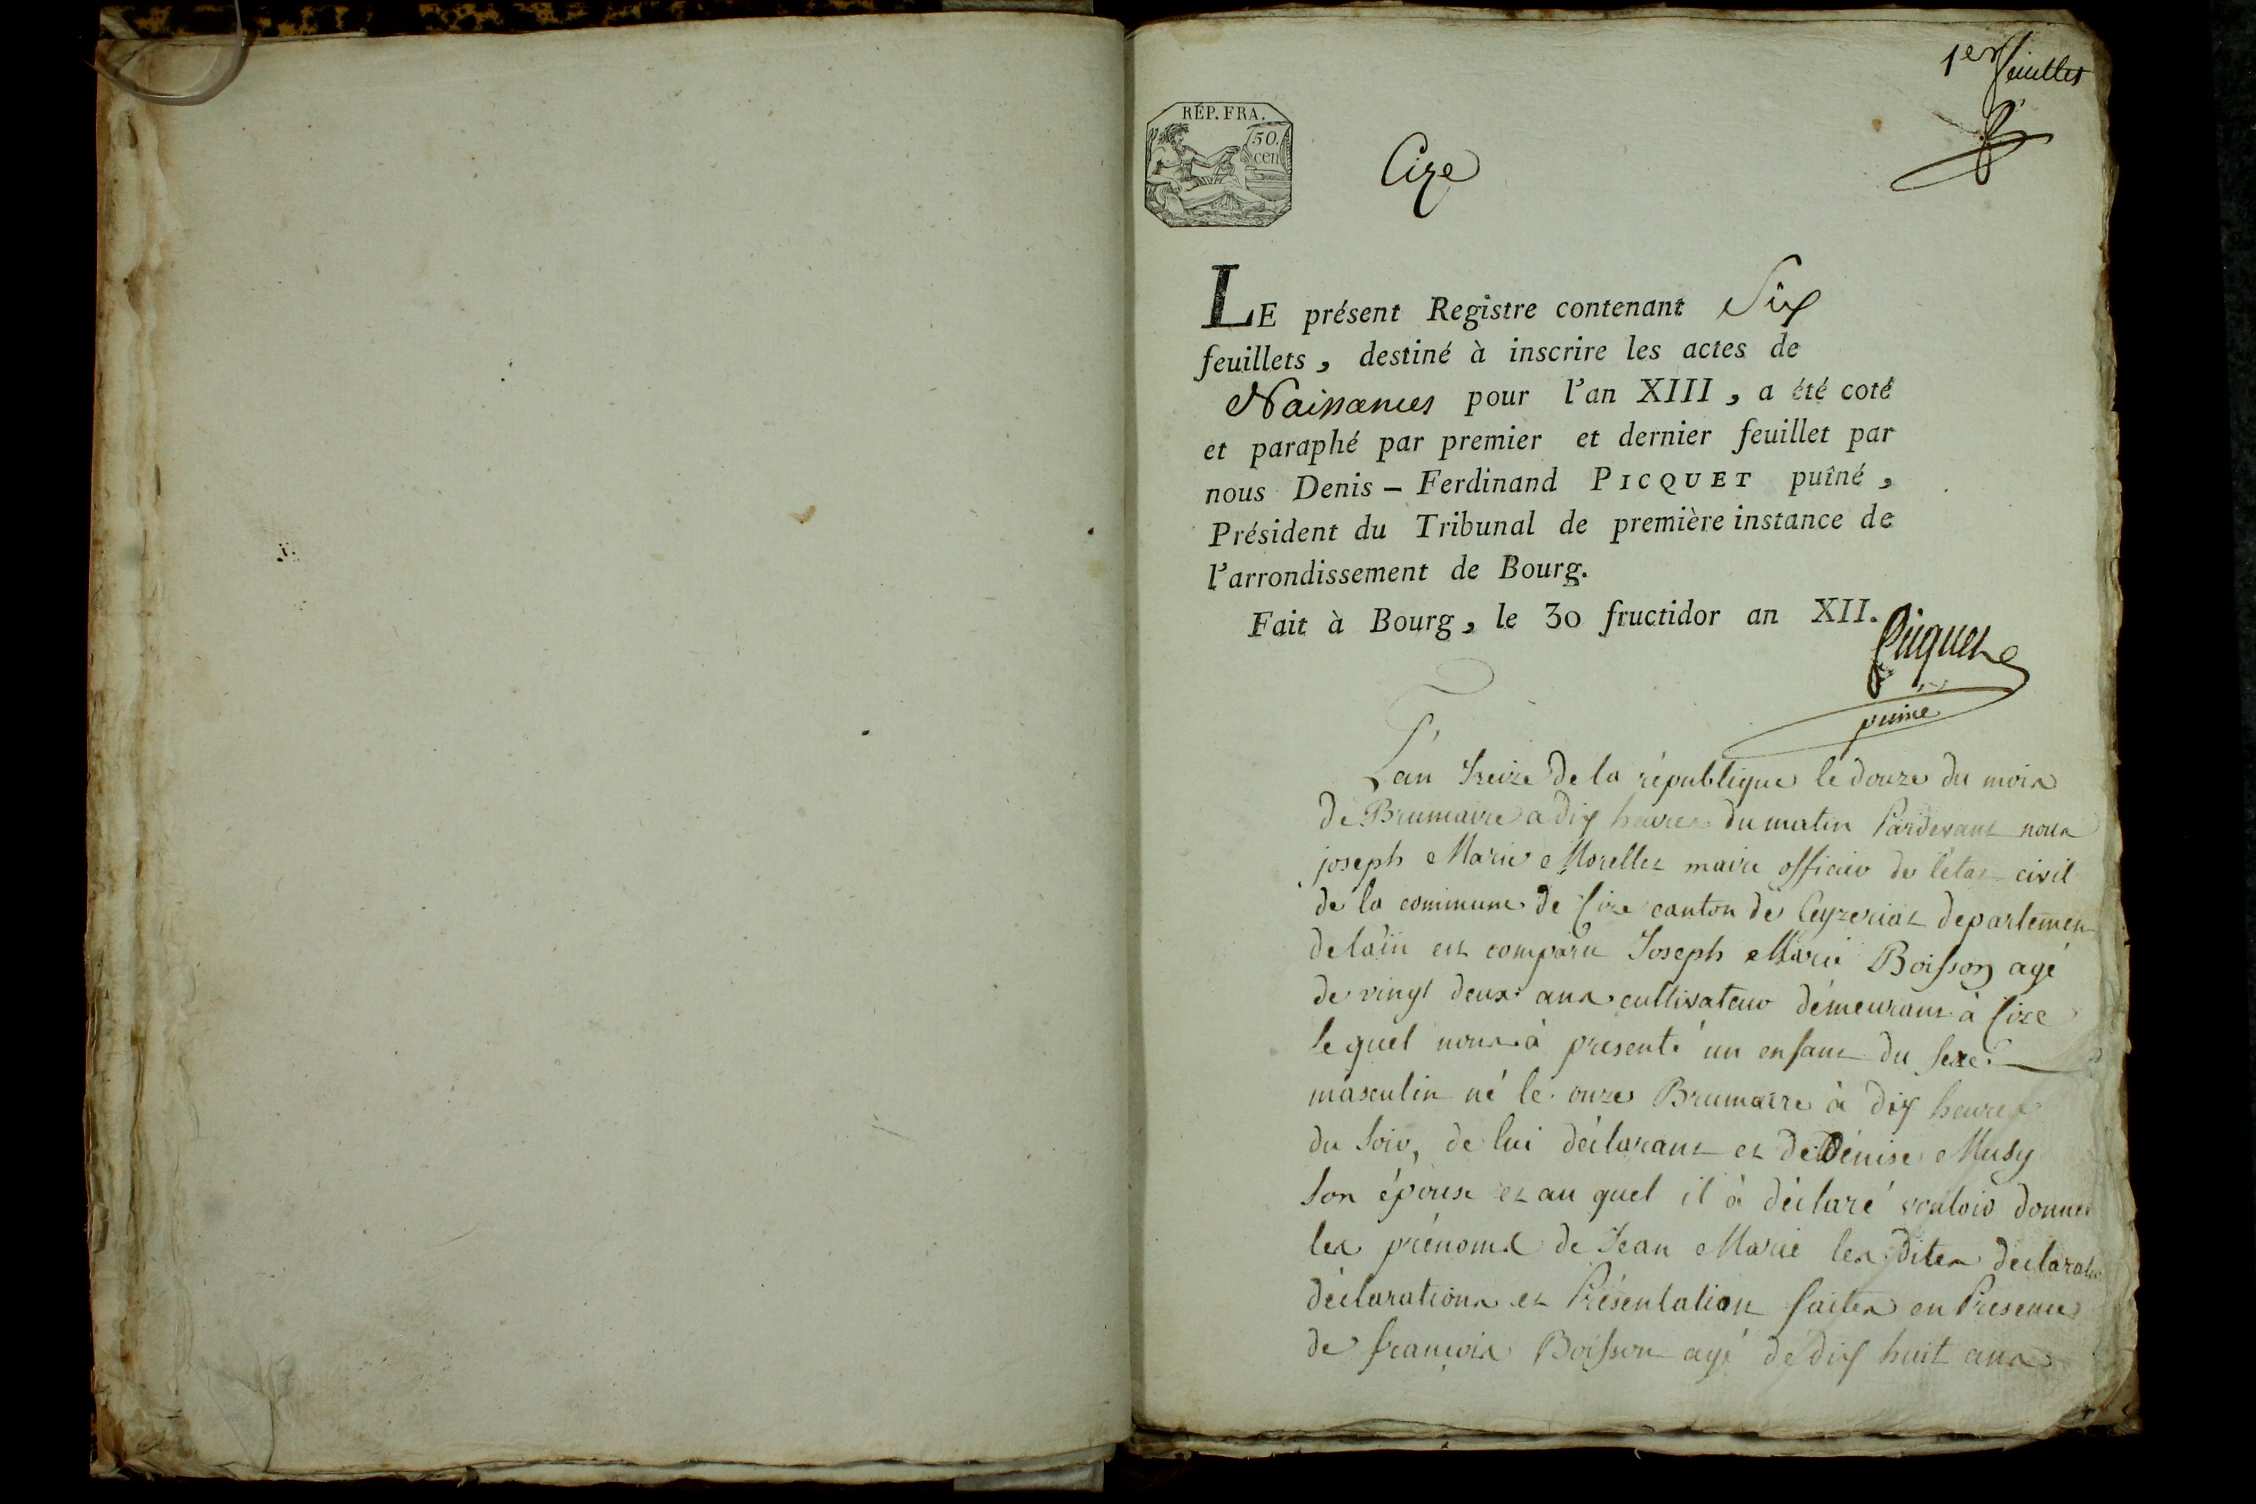 1er feuillet
RÉP. FRA.
50.
cen
Cize
LE présent Registre contenant Six
feuillets, destiné à inscrire les actes de
Naissances pour l'an XIII, a été coté
et paraphé par premier et dernier feuillet par
nous Denis-Ferdinand PICQUET puîné,
Président du Tribunal de première instance de
l'arrondissement de Bourg.
Fait à Bourg, le 30 fructidor an XII.
Picquet
puiné
L'an treize de la république le douze du mois
de Brumaire a dix heures du matin Pardevant nous
joseph Marie Morellet maire officier de l'état civil
de la commune de Cize canton de Ceyzeriat departemen
de lain est comparu Joseph Marie Boisson agé
de vingt deux ans cultivateur démeurant à Cize
le quel nous à presenté un enfant du sexe
masculin né le onze Brumaire à dix heures
du soir, de lui déclarant et de Dénise Musy
son épouse et au quel il à déclaré vouloir donner
les prénoms de Jean Marie les dites declaratio
déclarations et Présentation faites en Presence
de françois Boisson agé de dix huit ans